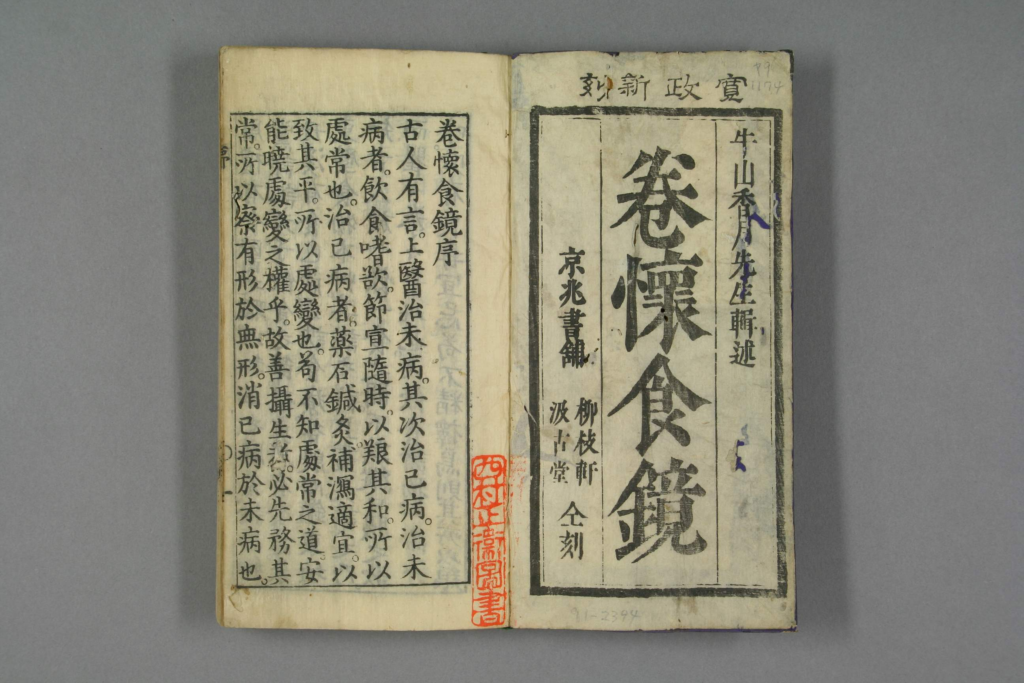 寛政新刻
牛山香月先生輯述
卷懷食鏡
京兆書舖
柳枝軒
汲古堂
仝刻
卷懷食鏡序
古人有言。上醫治未病。其次治已病。治未
病者。飮食嗜欲。節宣隨時。以艱其和。所以
處常也。治已病者。藥石鍼灸。補瀉適宜。以
致其平。所以處變也。苟不知處常之道。安
能曉處變之權乎。故善攝生者。必先務其
常。所以察有形於無形。消已病於未病也。
11-2394